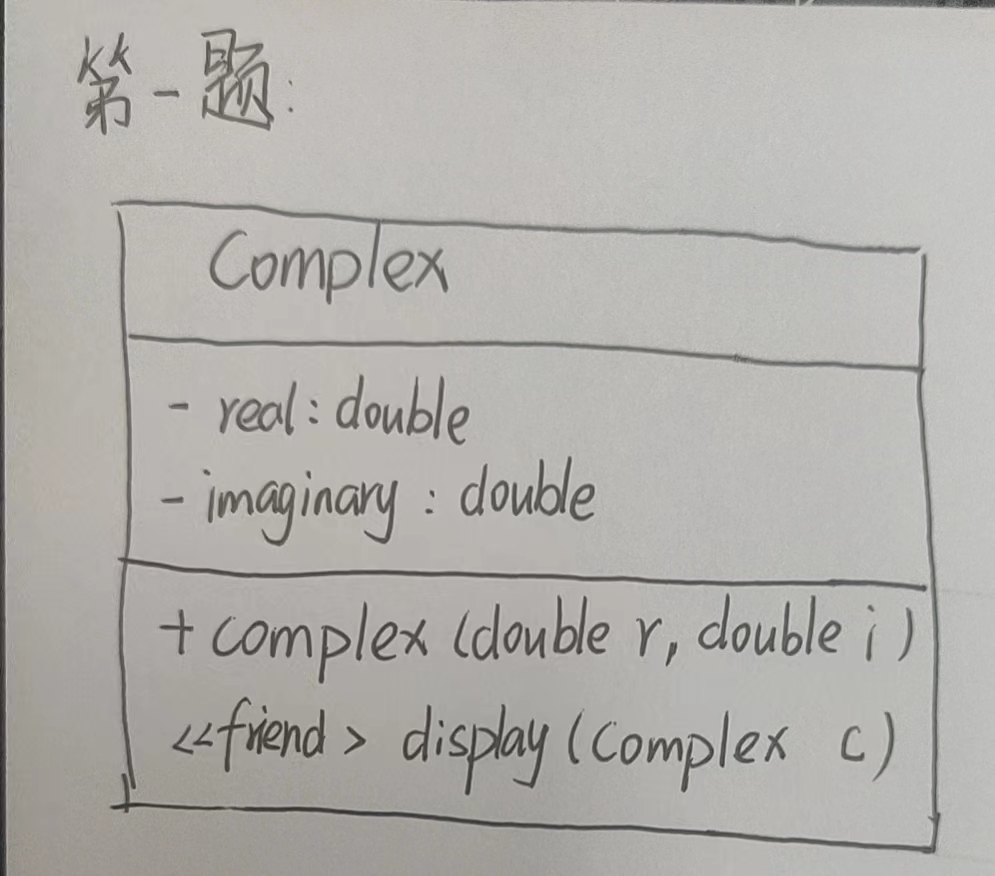 第一题:
Complex
- real : double
- imaginary : double
+ complex (double r, double i)
<<friend> display (Complex c)